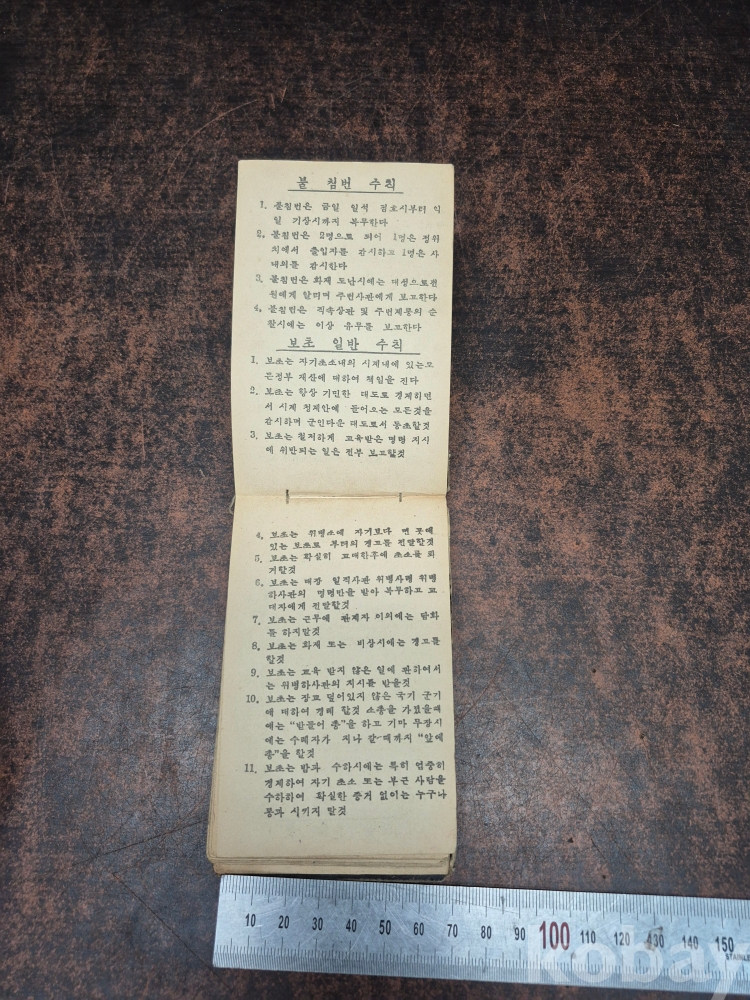 불 침번 수칙
1. 불침번은 금일 일석 점호시부터 익
일 기상시까지 복무한다
2. 불침번은 2명으로 되어 1명은 정위
치에서 출입자를 감시하고 1명은 사
내외를 감시한다
3. 불침번은 화재 도난시에는 대성으로전
원에게 알리며 주번사관에게 보고한다
4. 불침번은 직속상관 및 주번제통의 순
찰시에는 이상 유무를 보고한다
보초 일반 수칙
1. 보초는 자기초소내의 시계내에 있는모
든정부 재산에 대하여 책임을 진다
2. 보초는 항상 기민한 태도로 경계하면
서 시계 청계안에 들어오는 모든것을
감시하며 군인다운 태도로서 동초할것
3. 보초는 철저하게 교육받은 명령 지시
에 위반되는 일은 전부 보고할것
4. 보초는 위병소에 자기보다 먼 곳에
있는 보초로 부터의 경고를 전달할것
5. 보초는 확실히 교대한후에 초소를 퇴
거할것
6. 보초는 대장 일직사관 위병사령 위병
하사관의 명령만을 받아 복무하고 교
대자에게 전달할것
7. 보초는 근무에 관계자 이외에는 담화
를 하지말것
8. 보초는 화재 또는 비상시에는 경고를
할것
9. 보초는 교육 받지 않은 일에 관하여서
는 위병하사관의 지시를 받을것
10. 보초는 장교 덮어있지 않은 국기 군기
에 대하여 경례 할것 소총을 가졌을때
에는 "받들어 총"을 하고 기마 무장시
에는 수례자가 지나 갈때까지 "앞에
총"을 할것
11. 보초는 밤과 수하시에는 특히 엄중히
경계하여 자기 초소 또는 부근 사람을
수하하여 확실한 증거 없이는 누구나
통과 시키지 말것
10 20 30 40 50 60 70 80 90 100 110 120 130 140 150
STAINLE
kobay